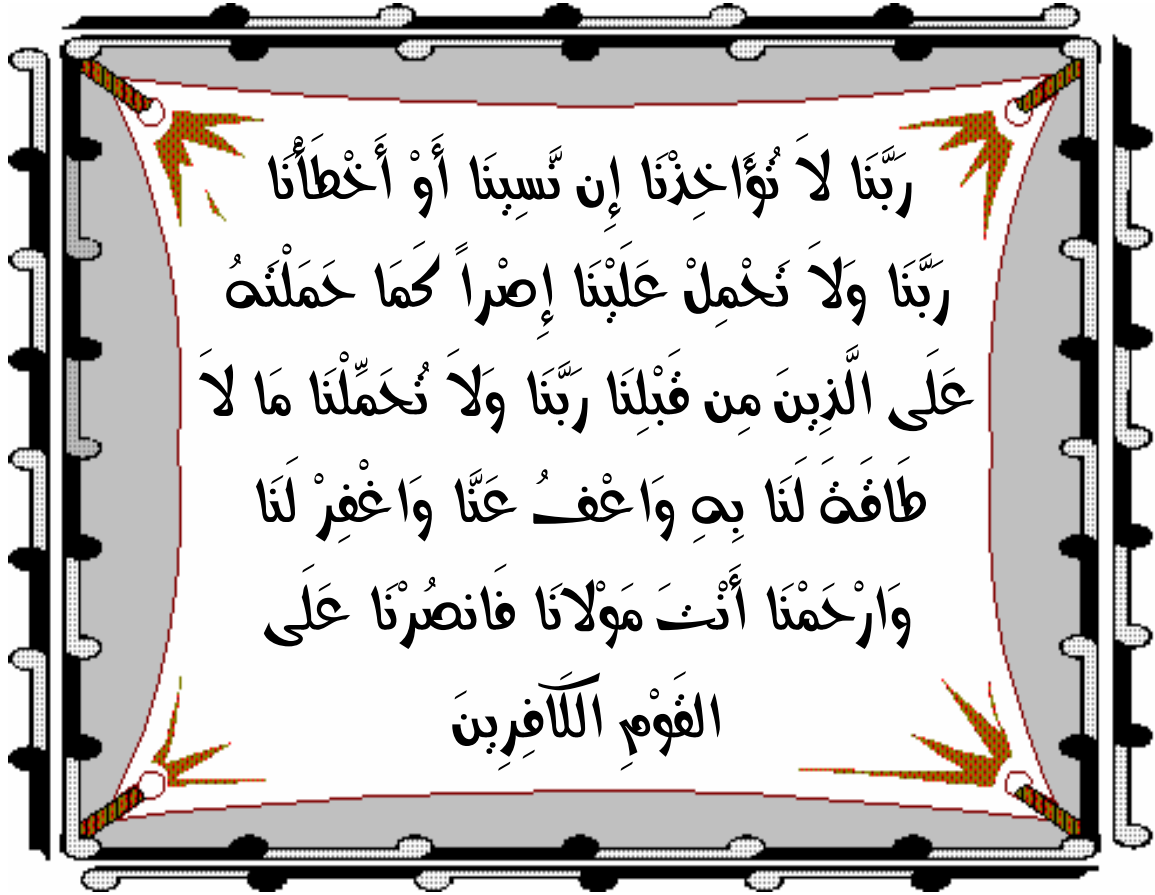 رَبَّنَا لاَ تُؤَاخِذْنَا إِن نَّسِينَا أَوْ أَخْطَأْنَا
رَبَّنَا وَلاَ تَحْمِلْ عَلَيْنَا إِصْراً كَمَا حَمَلْتَهُ
عَلَى الَّذِينَ مِن قَبْلِنَا رَبَّنَا وَلاَ تُحَمِّلْنَا مَا لاَ
طَاقَةَ لَنَا بِهِ وَاعْفُ عَنَّا وَاغْفِرْ لَنَا
وَارْحَمْنَا أَنْتَ مَوْلانَا فَانصُرْنَا عَلَى
القَوْمِ الكَافِرِينَ